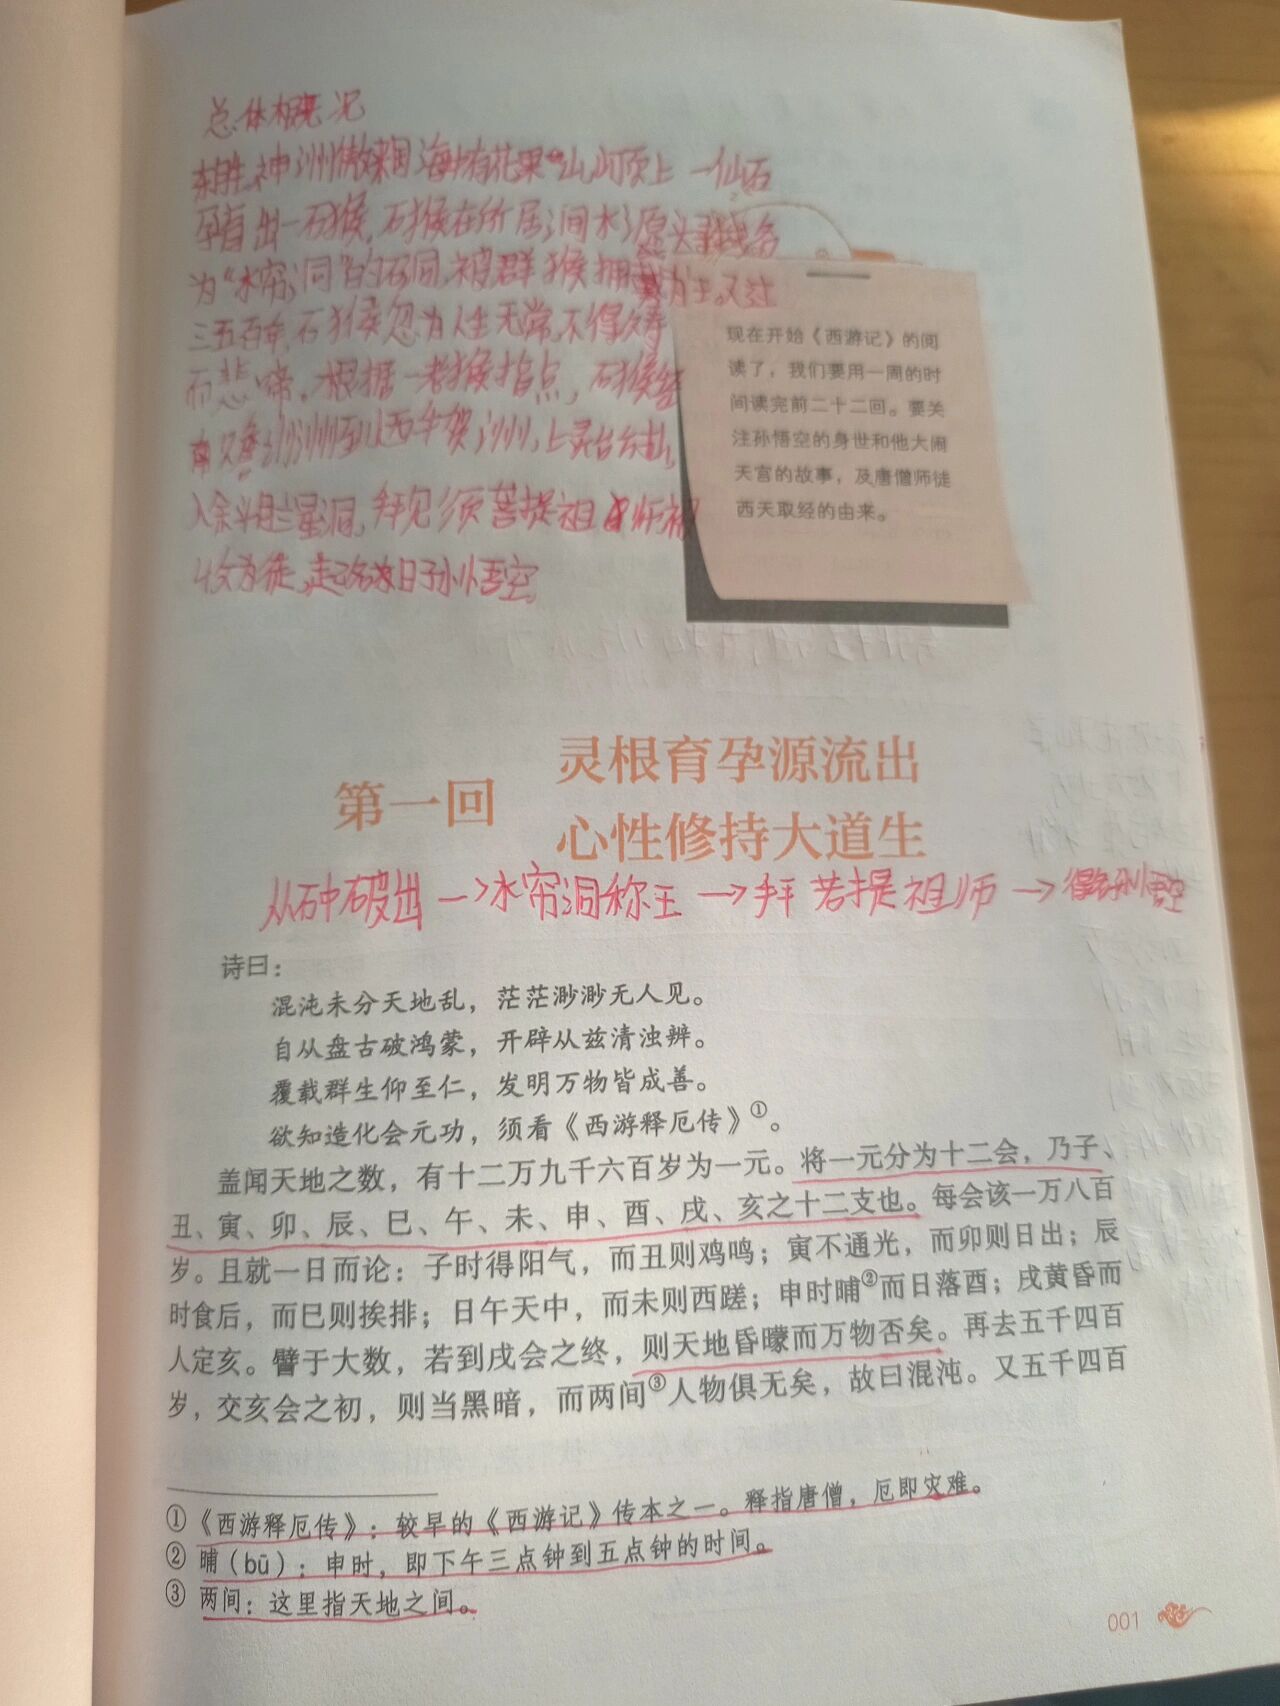 总体概况
东胜神洲傲来国海中有花果山,山顶上一仙石
孕育出一石猴,石猴在所居涧水源头
为“水帘洞”的石洞,被群猴拥戴为王。又过
三五百年,石猴忽为人生无常,不得久寿
而悲啼。根据一老猴指点,石猴经
南 洲到西牛贺洲,上灵台 山,
入斜月三星洞,拜见须菩提祖师,被
收为徒,起名 曰孙悟空。
现在开始《西游记》的阅
读了,我们要用一周的时
间读完前二十二回。要关
注孙悟空的身世和他大闹
天宫的故事,及唐僧师徒
西天取经的由来。
第一回
灵根育孕源流出
心性修持大道生
从石中破出→水帘洞称王→拜菩提祖师→得名孙悟空
诗曰:
混沌未分天地乱,茫茫渺渺无人见。
自从盘古破鸿蒙,开辟从兹清浊辨。
覆载群生仰至仁,发明万物皆成善。
欲知造化会元功,须看《西游释厄传》①。
盖闻天地之数,有十二万九千六百岁为一元。将一元分为十二会,乃子、
丑、寅、卯、辰、巳、午、未、申、酉、戌、亥之十二支也。每会该一万八百
岁。且就一日而论:子时得阳气,而丑则鸡鸣;寅不通光,而卯则日出;辰
时食后,而巳则挨排;日午天中,而未则西蹉;申时晡②而日落酉;戌黄昏而
人定亥。譬于大数,若到戌会之终,则天地昏曚而万物否矣。再去五千四百
岁,交亥会之初,则当黑暗,而两间③人物俱无矣,故曰混沌。又五千四百
①《西游释厄传》:较早的《西游记》传本之一。释指唐僧,厄即灾难。
② 晡(bū):申时,即下午三点钟到五点钟的时间。
③ 两间:这里指天地之间。
001